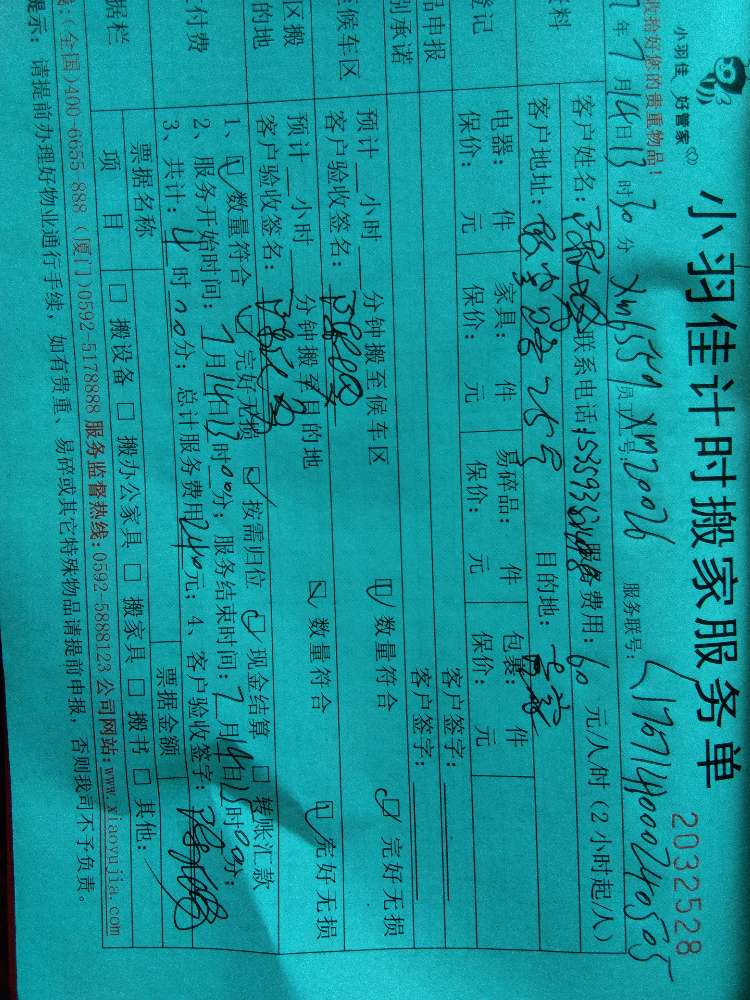 小羽佳 好管家
小羽佳计时搬家服务单
2032528
收拾好您的贵重物品！
年7月14日13时30分 xm6559 员工号: xm2026 服务联号:
客户姓名: 联系电话: 服务费用: 60 元/人时（2小时起/人）
客户地址: 25号 目的地:
登记
电器: 件 家具: 件 易碎品: 件 包裹: 件
保价: 元 保价: 元 保价: 元 保价: 元
品申报
客户签字:
别承诺
客户签字:
候车区
预计 小时 分钟搬至候车区 数量符合 完好无损
客户验收签名:
区搬
的地
预计 小时 分钟搬至目的地 数量符合 完好无损
客户验收签名:
付费
1、 数量符合 完好无损 按需归位 现金结算 转账汇款
2、服务开始时间: 7月14日13时00分; 服务结束时间: 7月14日15时00分;
3、共计: 4时00分; 总计服务费用240元; 4、客户验收签字:
据栏
票据名称 票据金额
项目 搬设备 搬办公家具 搬家具 搬书 其他:
(全国)400-6655-888 (厦门)0592-5178888 服务监督热线:0592-5888123 公司网站:www.xiaoyujia.com
提示: 请提前办理好物业通行手续，如有贵重、易碎或其它特殊物品请提前申报，否则我司不予负责。